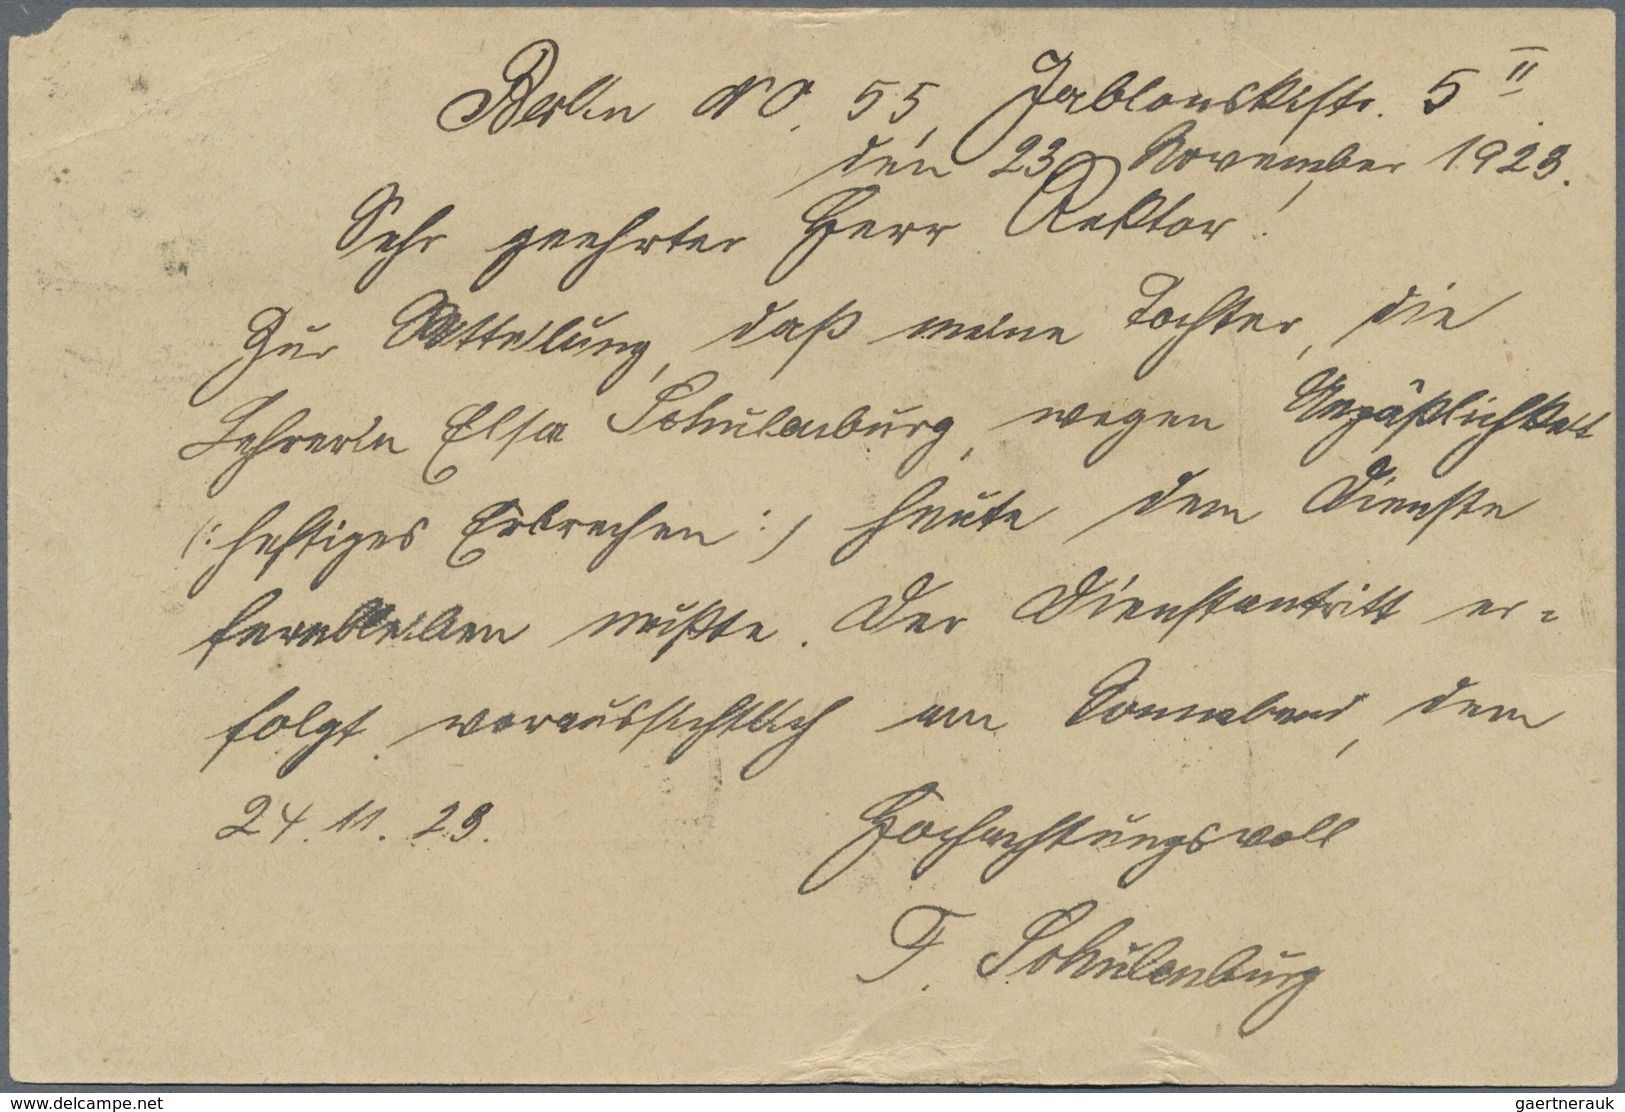 Berlin NO. 55, Jablonskistr. 5 II.
den 23. November 1923.
Sehr geehrter Herr Rektor!
Zur Mitteilung, daß meine Tochter, die
Lehrerin Elsa Schulenburg, wegen Unpäßlichkeit
(: heftiges Erbrechen :) heute dem Dienste
fernbleiben mußte. Der Dienstantritt er=
folgt voraussichtlich am Sonnabend, dem
24. 11. 23.
Hochachtungsvoll
F. Schulenburg
www.delcampe.net
gaertnerauk